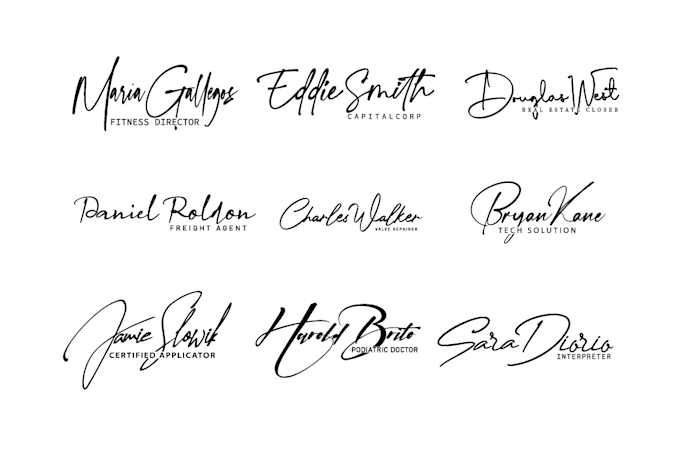 Maria Gallegos
FITNESS DIRECTOR
Eddie Smith
CAPITALCORP
Douglas West
REAL ESTATE CLOSER
Daniel Roldon
FREIGHT AGENT
Charles Walker
VALVE REPAIRER
Bryan Kane
TECH SOLUTION
Jamie Slowik
CERTIFIED APPLICATOR
Harold Brito
PODIATRIC DOCTOR
Sara Diorio
INTERPRETER